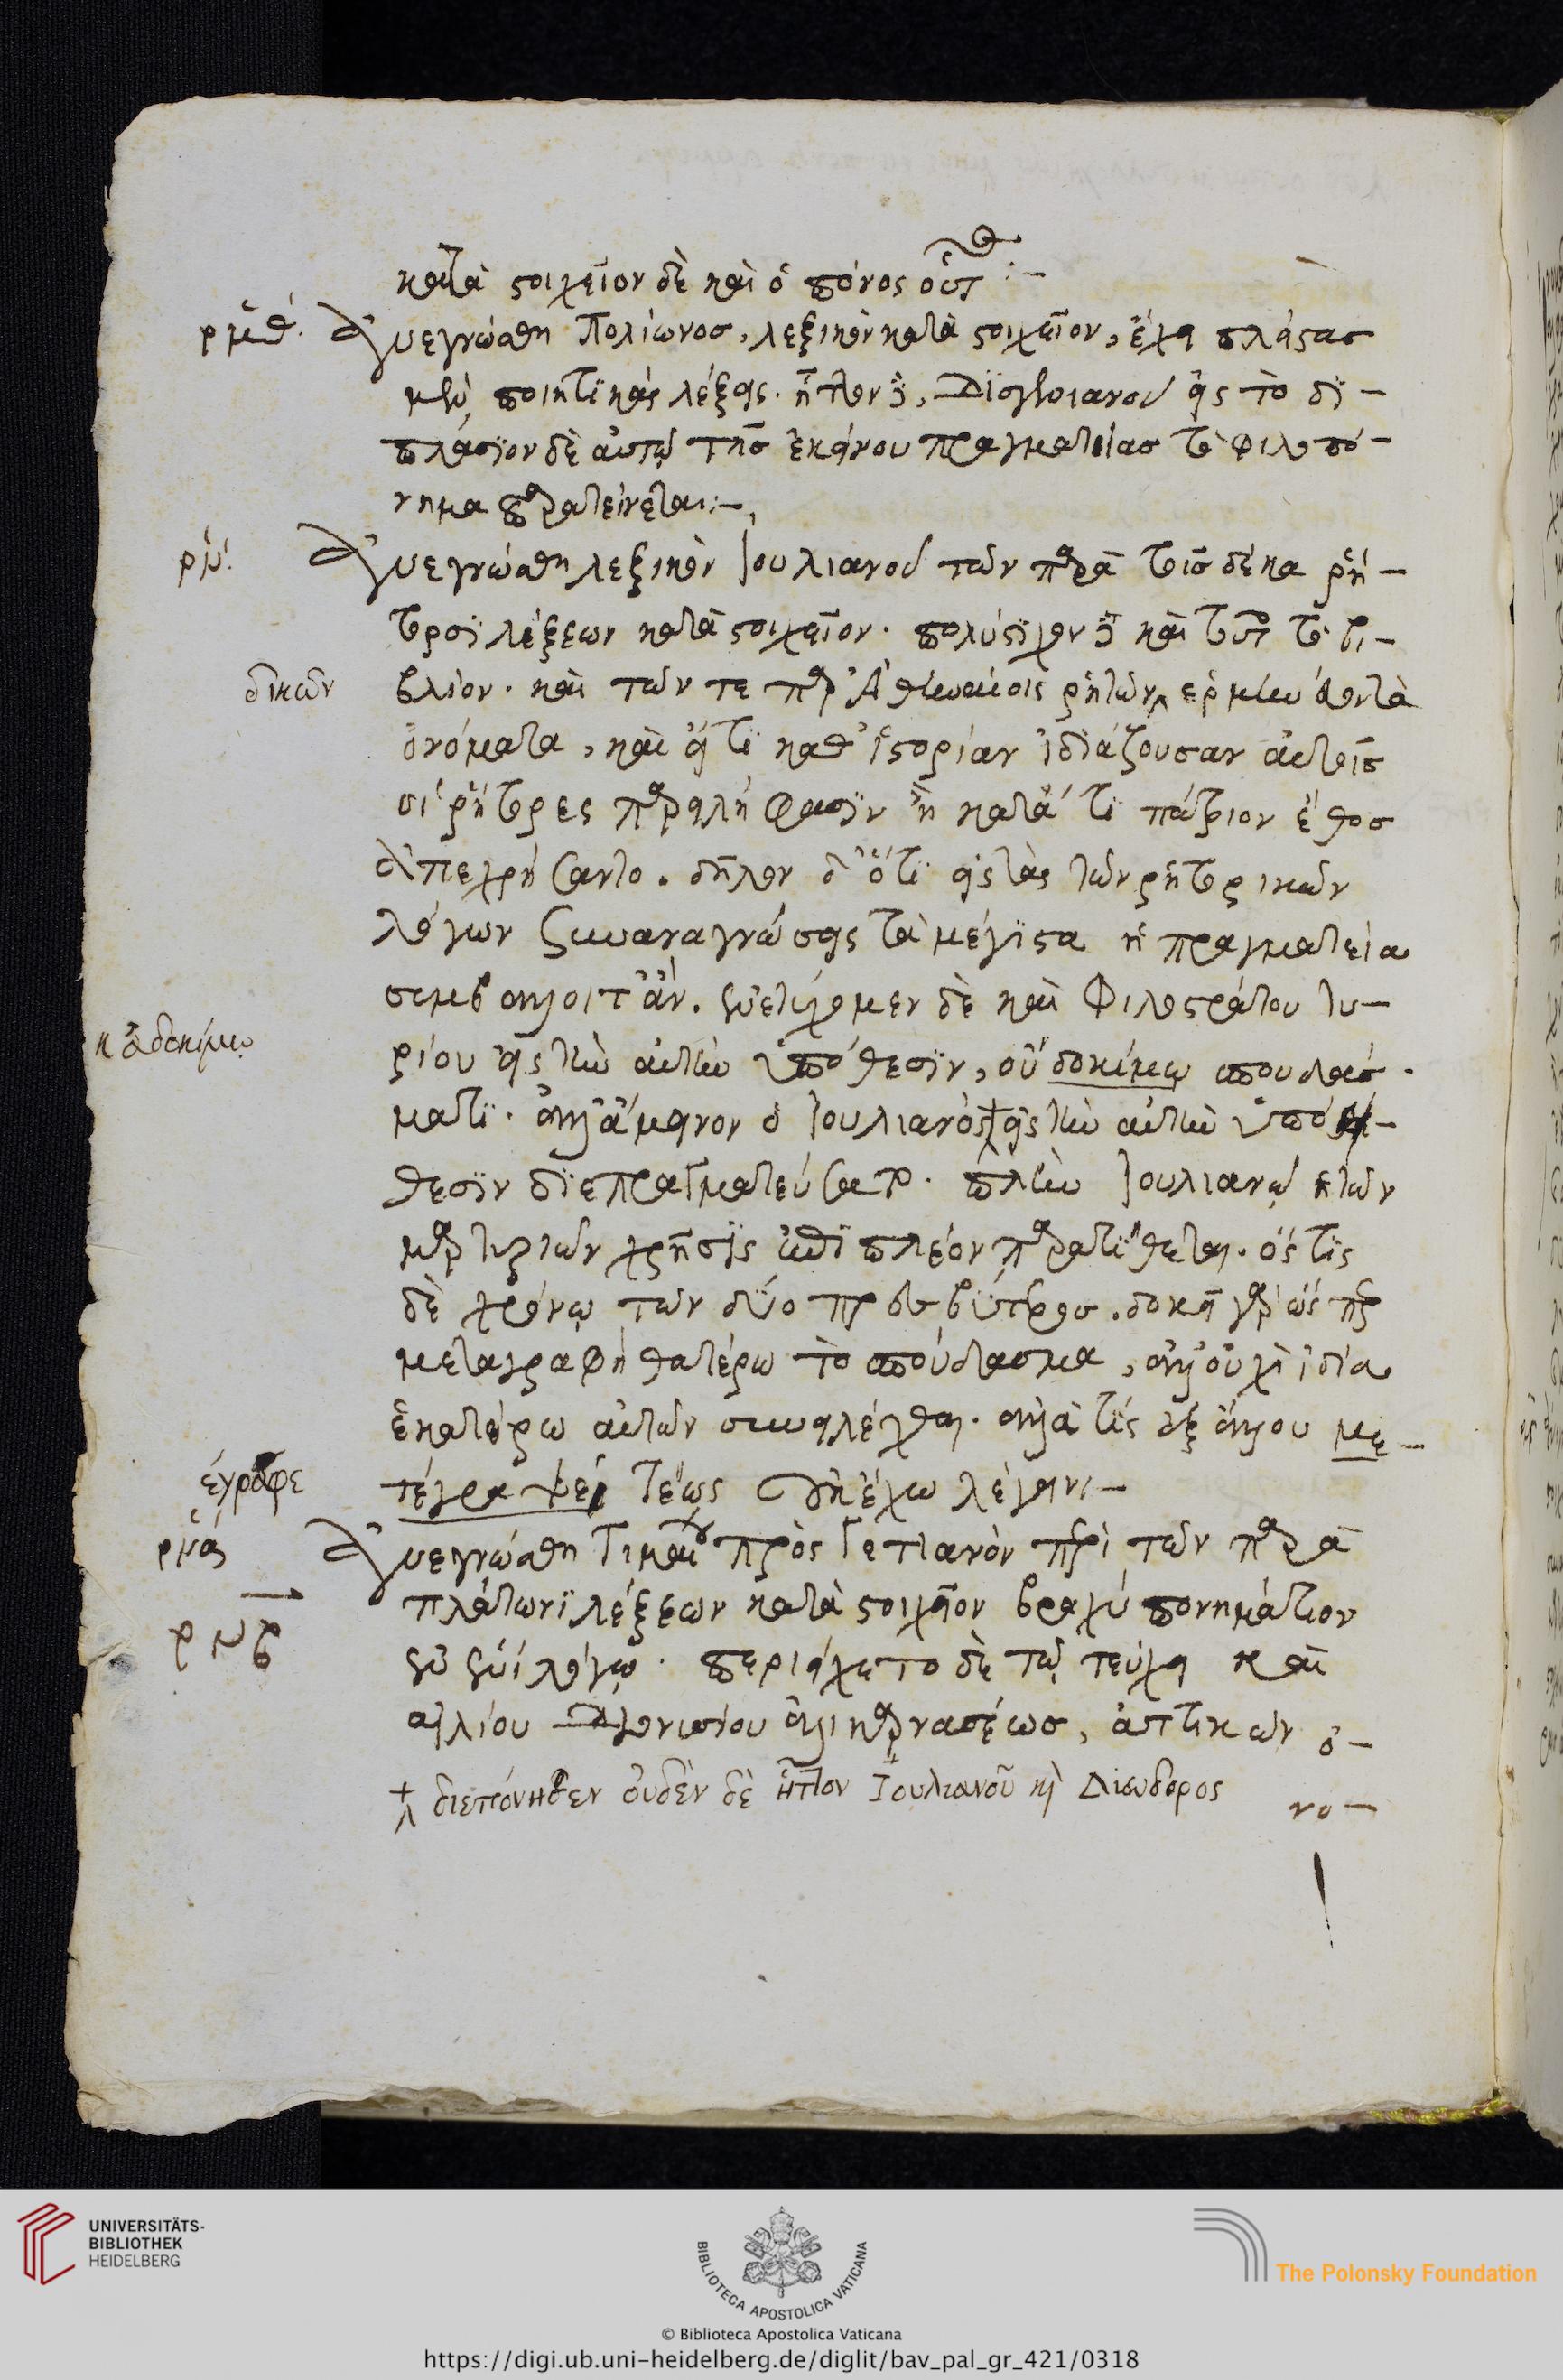 κατὰ στοιχεῖον δὲ καὶ ὁ πόνος οὗτος :-
ρμθ´. Ἀνεγνώσθη Πολίωνοσ, λεξικὸν κατὰ στοιχεῖον, ἔχει πλείστασ
μὲν ποιητικὰς λέξεις. ἧττον ἢ, Διογενιανοῦ εἰς τὸ δι-
πλάσιον δὲ αὐτῶ τῆσ ἐκείνου πραγματείασ τὸ φιλοπό-
νημα παρατείνεται :-
ρν´. Ἀνεγνώσθη λεξικὸν Ἰουλιανοῦ τῶν παρὰ τοῖσ δέκα ῥή-
τορσι λέξεων κατὰ στοιχεῖον. πολύστιχον δὲ καὶ τοῦτο τὸ βι-
δικῶν
βλίον. καὶ τῶν τε παρ' Ἀθηναίοις ῥητῶν ἑρμηνεύονται
ὀνόματα, καὶ εἴ τι καθ' ἱστορίαν ἰδιάζουσαν αὐτοῖσ
οἱ ῥήτορες παρειλήφασιν ἢ κατά τι πάτριον ἔθοσ
ἀπεχρήσαντο. δῆλον δ' ὅτι εἰς τὰς τῶν ῥητορικῶν
λόγων συναναγνώσεις τὰ μέγιστα ἡ πραγματεία
συμβάλλοιτ' ἄν. ἐνετύχομεν δὲ καὶ Φιλοστράτου Τυ-
κ ἀδοκίμω
ρίου εἰς τὴν αὐτὴν ὑπόθεσιν, οὐ δοκίμω σπουδάσ-
ματι. ἀλλ' ἄμεινον ὁ Ἰουλιανὸς εἰς τὴν αὐτὴν ὑπό-
θεσιν διεπραγματεύσατο. πλὴν Ἰουλιανῶ ἡ τῶν
μαρτυριῶν χρῆσις ἐπὶ πλέον παρατίθεται. ὅστις
δὲ χρόνω τῶν δύο πρεσβύτεροσ. δοκεῖ γὰρ ὡς παρ
μεταγραφῆ θατέρω τὸ σπούδασμα, ἀλλ' οὐχὶ ἰδία
ἑκατέρω αὐτῶν συνειλέχθαι. ἀλλὰ τίς ἐξ ἄλλου με-
έγραφε
τέγραψε, τέως οὐκ ἔχω λέγειν :-
ρνα Ἀνεγνώσθη Τιμαίου πρὸς Γετιανὸν περὶ τῶν παρὰ
πλάτωνι λέξεων κατὰ στοιχεῖον βραχύ πονημάτιον
ρνβ
ἐν ἑνὶ λόγω. περιείχετο δὲ τῶ τεύχει καὶ
αἰλίου Διονυσίου ἁλικαρνασέωσ, ἀττικῶν ὀ-
διεπόνησεν οὐδὲν δὲ ἧττον Ἰουλιανοῦ κ̀ Διόδορος
νο-
UNIVERSITÄTS-
BIBLIOTHEK
HEIDELBERG
BIBLIOTECA APOSTOLICA VATICANA
The Polonsky Foundation
© Biblioteca Apostolica Vaticana
https://digi.ub.uni-heidelberg.de/diglit/bav_pal_gr_421/0318